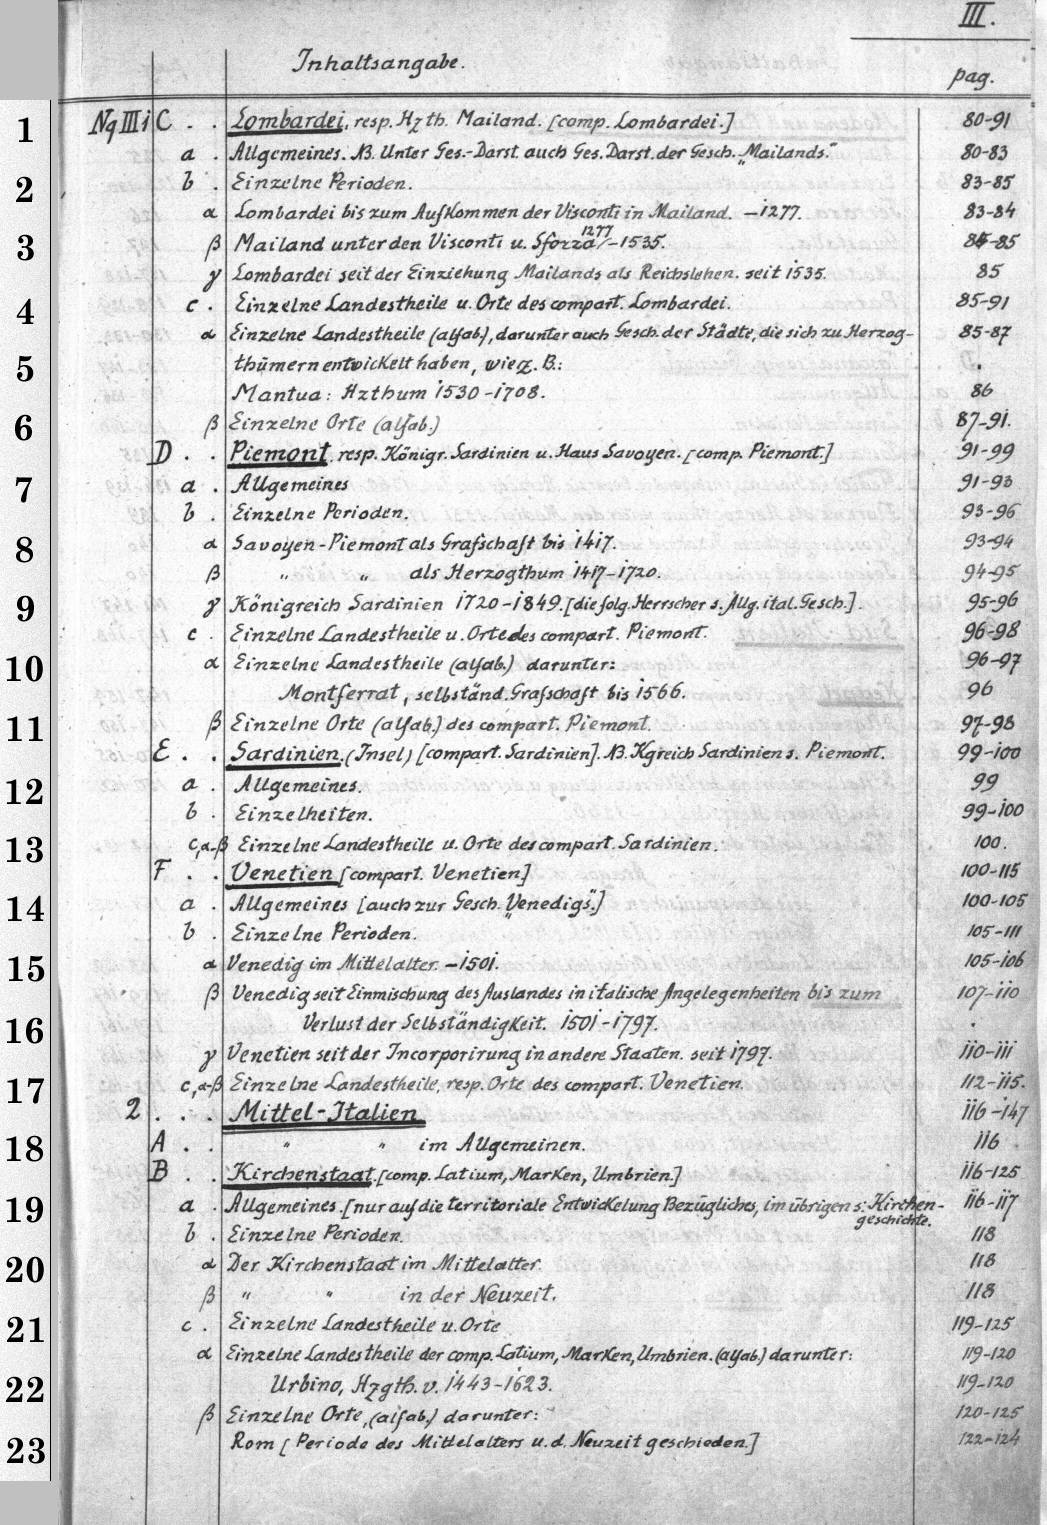 III.
Inhaltsangabe. pag.
1 Nq III i C . . Lombardei, resp. Hzth. Mailand. [comp. Lombardei.] 80-91
a . Allgemeines. NB. Unter Ges.-Darst. auch Ges. Darst. der Gesch. „Mailands." 80-83
2 b . Einzelne Perioden. 83-85
α Lombardei bis zum Aufkommen der Visconti in Mailand. -1277. 83-84
3 β Mailand unter den Visconti u. Sforza 1277/-1535. 84-85
γ Lombardei seit der Einziehung Mailands als Reichslehen. seit 1535. 85
4 c . Einzelne Landestheile u. Orte des compart. Lombardei. 85-91
α Einzelne Landestheile (alfab.), darunter auch Gesch. der Städte, die sich zu Herzog- 85-87
5 thümern entwickelt haben, wie z. B.:
Mantua: Hzthum 1530-1708. 86
6 β Einzelne Orte (alfab.) 87-91.
D . . Piemont, resp. Königr. Sardinien u. Haus Savoyen. [comp. Piemont.] 91-99
7 a . Allgemeines 91-93
b . Einzelne Perioden. 93-96
8 α Savoyen-Piemont als Grafschaft bis 1417. 93-94
β " " als Herzogthum 1417-1720. 94-95
9 γ Königreich Sardinien 1720-1849. [die folg. Herrscher s. Allg. ital. Gesch.]. 95-96
c . Einzelne Landestheile u. Orte des compart. Piemont. 96-98
10 α Einzelne Landestheile (alfab.) darunter: 96-97
Montferrat, selbständ. Grafschaft bis 1566. 96
11 β Einzelne Orte (alfab.) des compart. Piemont. 97-98
E . . Sardinien. (Insel) [compart. Sardinien]. NB. Kgreich Sardinien s. Piemont. 99-100
12 a . Allgemeines. 99
b . Einzelheiten. 99-100
13 c, α-β Einzelne Landestheile u. Orte des compart. Sardinien. 100.
F . . Venetien [compart. Venetien] 100-115
14 a . Allgemeines [auch zur Gesch. „Venedigs".] 100-105
b . Einzelne Perioden. 105-111
15 α Venedig im Mittelalter. -1501. 105-106
β Venedig seit Einmischung des Auslandes in italische Angelegenheiten bis zum 107-110
16 Verlust der Selbständigkeit. 1501-1797.
γ Venetien seit der Incorporirung in andere Staaten. seit 1797. 110-111
17 c, α-β Einzelne Landestheile, resp. Orte des compart. Venetien. 112-115.
2 . . . Mittel-Italien 116-147
18 A . . " " im Allgemeinen. 116
B . . Kirchenstaat. [comp. Latium, Marken, Umbrien.] 116-125
19 a . Allgemeines. [nur auf die territoriale Entwickelung Bezügliches, im übrigen s: Kirchen- 116-117
geschichte.
b . Einzelne Perioden. 118
20 α Der Kirchenstaat im Mittelalter. 118
β " " in der Neuzeit. 118
21 c . Einzelne Landestheile u. Orte 119-125
α Einzelne Landestheile der comp. Latium, Marken, Umbrien. (alfab.) darunter: 119-120
22 Urbino, Hzgth. v. 1443-1623. 119-120
β Einzelne Orte, (alfab.) darunter: 120-125
23 Rom [Periode des Mittelalters u. d. Neuzeit geschieden.] 122-124